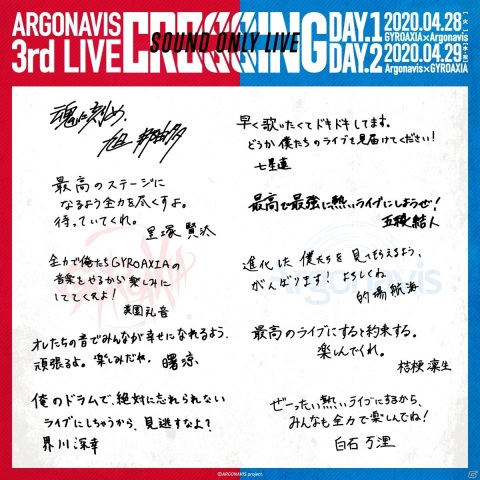 ARGONAVIS
3rd LIVE
CROSSING
SOUND ONLY LIVE
DAY.1
DAY.2
2020.04.28 [火]
GYROAXIA×Argonavis
2020.04.29 [水・祝]
Argonavis×GYROAXIA
魂に刻め、
旭 那由多
最高のステージに
なるよう全力を尽くすよ。
待っていてくれ。
里塚 賢汰
全力で俺たちGYROAXIAの
音楽をやるから楽しみに
しててくれよ!
美園礼音
オレたちの音でみんなが幸せになれるよう、
頑張るよ。楽しみだね。 曙 涼
俺のドラムで、絶対に忘れられない
ライブにしちゃうから、見逃すなよ?
界川深幸
早く歌いたくてドキドキしてます。
どうか僕たちのライブを見届けてください!
七星蓮
最高で最強に熱いライブにしようぜ!
五稜結人
進化した僕たちを見てもらえるよう、
がんばります! よろしくね
的場航海
最高のライブにすると約束する。
楽しんでくれ。
桔梗 凛生
ぜーったい熱いライブにするから、
みんなも全力で楽しんでね!
白石 万浬
GYROAXIA
Argonavis
©ARGONAVIS project.